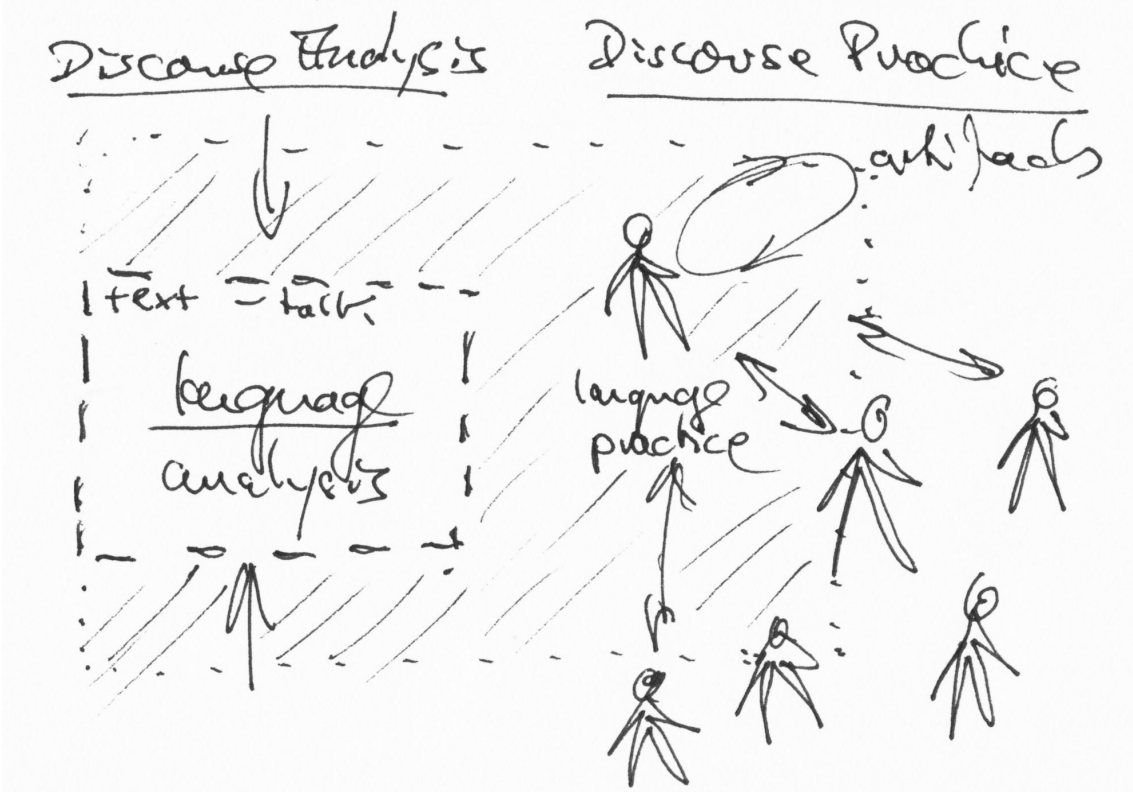 Discourse Analysis
Discourse Practice
artifacts
text - talk
language
analysis
language
practice